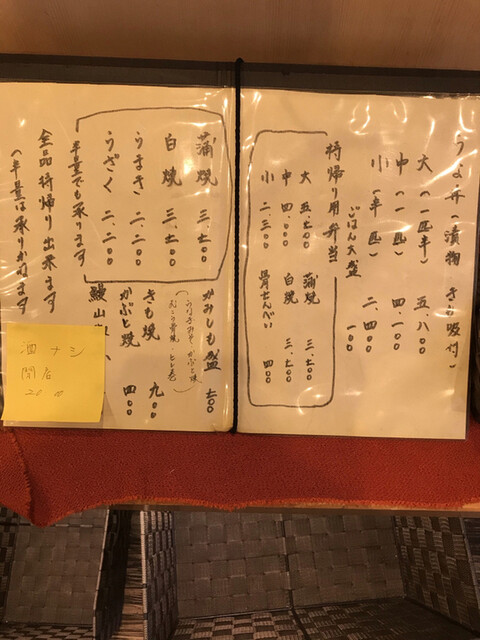 うな丼(漬物 きも吸付)
大(一匹半)五、八〇〇
中(一匹)四、一〇〇
小(半匹)二、四〇〇
ごはん大盛
持帰り用弁当
大 五、七〇〇
中 四、〇〇〇
小 二、三〇〇
蒲焼 三、七〇〇
白焼 三、七〇〇
骨せんべい 四〇〇
蒲焼 三、七〇〇
白焼 三、七〇〇
うまき 二、二〇〇
うざく 二、二〇〇
半量でも承ります
全品持帰り出来ます
(半量は承りかねます
かみしも盛 七〇〇
きも焼 九〇〇
かぶと焼 四〇〇
鰻山
酒ナシ
閉店
20:0